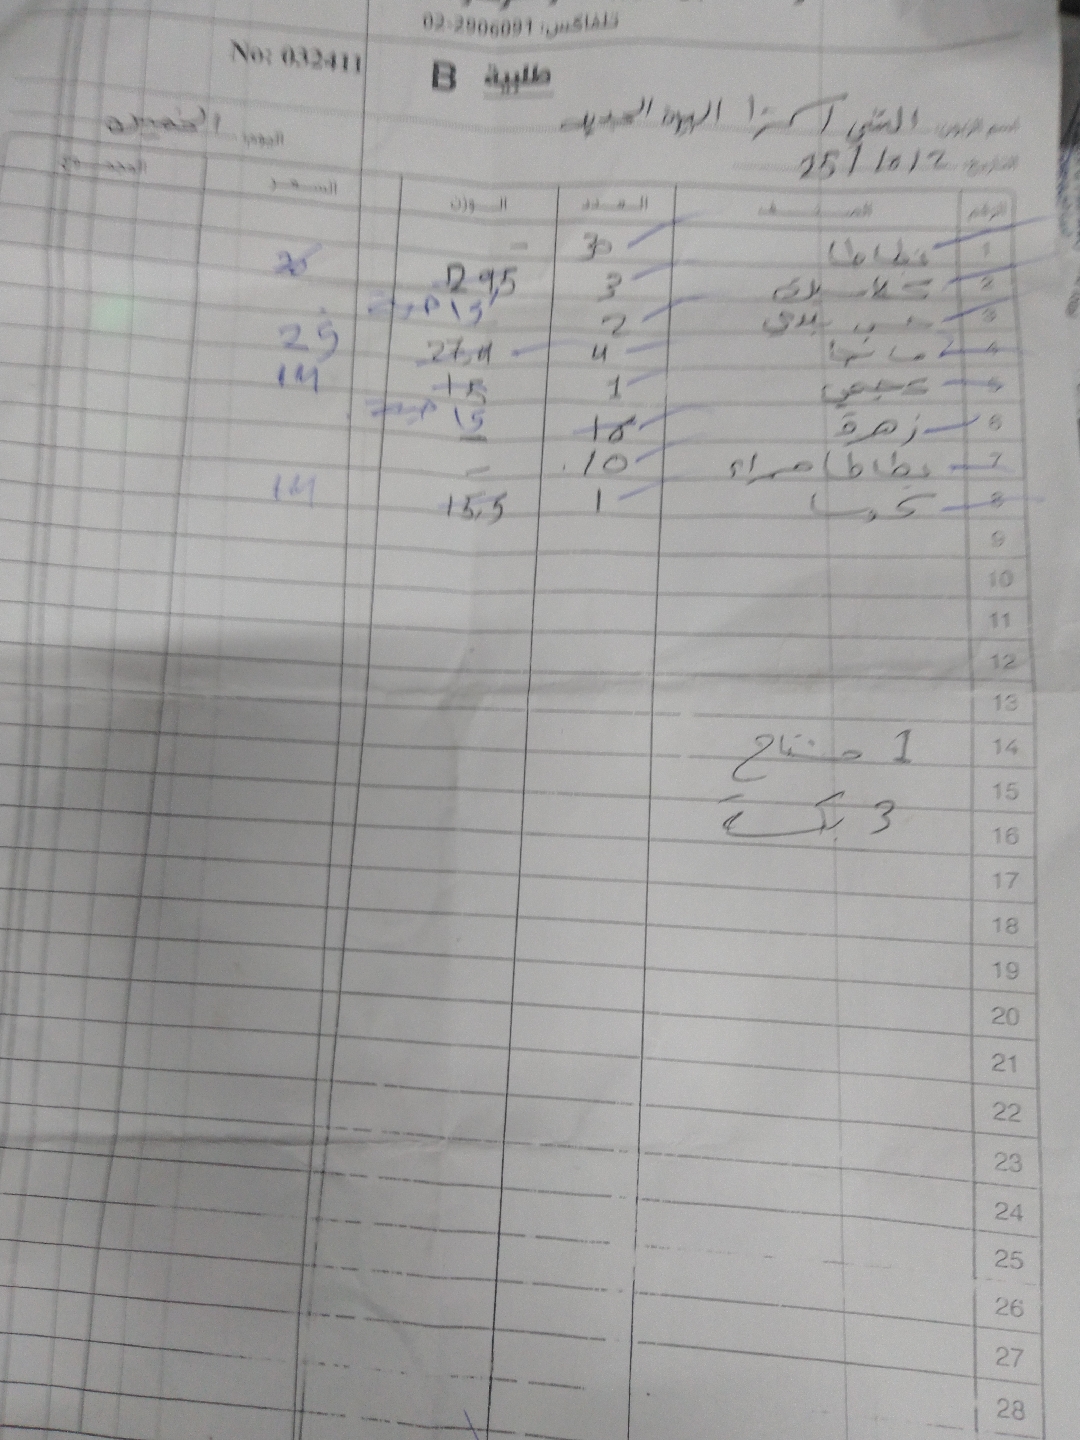 تلفاكس: 02-2906091
No: 032411
طلبية B
اسم الزبون: الشني اكسترا البيرة الجديد
اليوم: الجمعة
التاريخ: 25/10/2
الرقم الصنف العدد الوزن السعر
1 بطاطا 30 -
2 بلدي 3 29,5
3 بلدي 2 15
4 مانجا 4 27,4 25
5 عجمي 1 15 14
6 زهرة 18 15
7 بطاطا حمراء 10 -
8 كوسا 1 15,5 14
9
10
11
12
13
14 1
15
16 3 بكسة
17
18
19
20
21
22
23
24
25
26
27
28